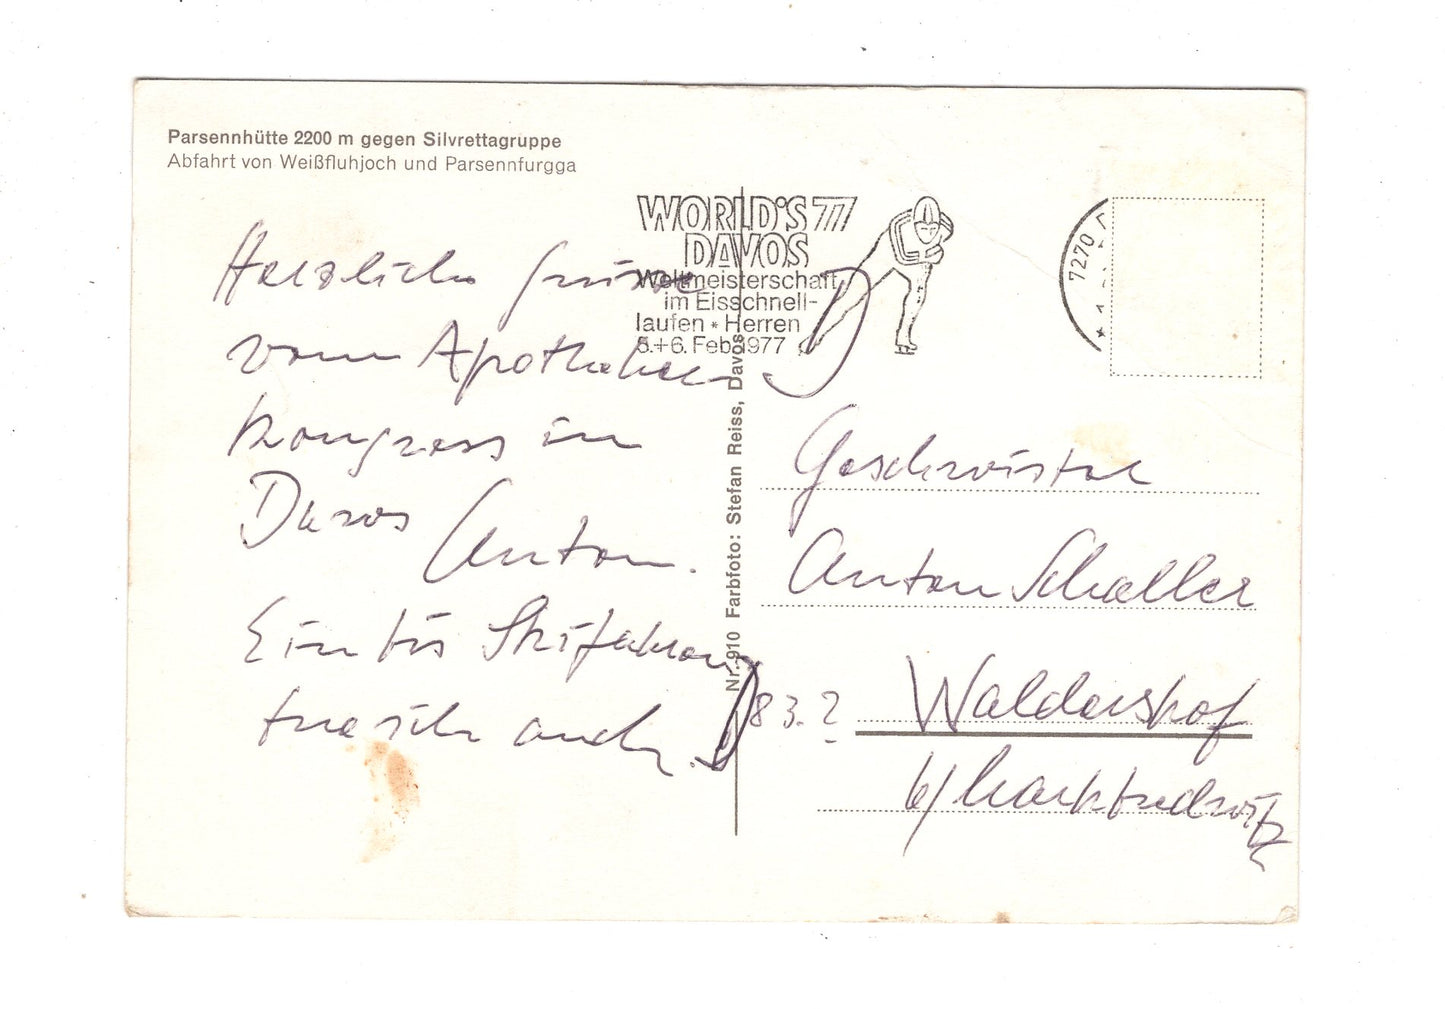 Parsennhütte 2200 m gegen Silvrettagruppe
Abfahrt von Weißfluhjoch und Parsennfurgga
WORLD'S 77
DAVOS
Weltmeisterschaft
im Eisschnell-
laufen * Herren
5.+6. Feb. 1977
7270
Herzliche Grüsse
vom Apotheker
kongress in
Davos Anton.
Ein bis Skifahren
tue ich auch.
Nr. 910 Farbfoto: Stefan Reiss, Davos
Geschwister
Anton Schaller
83.? Waldershof
b/ Marktredwitz